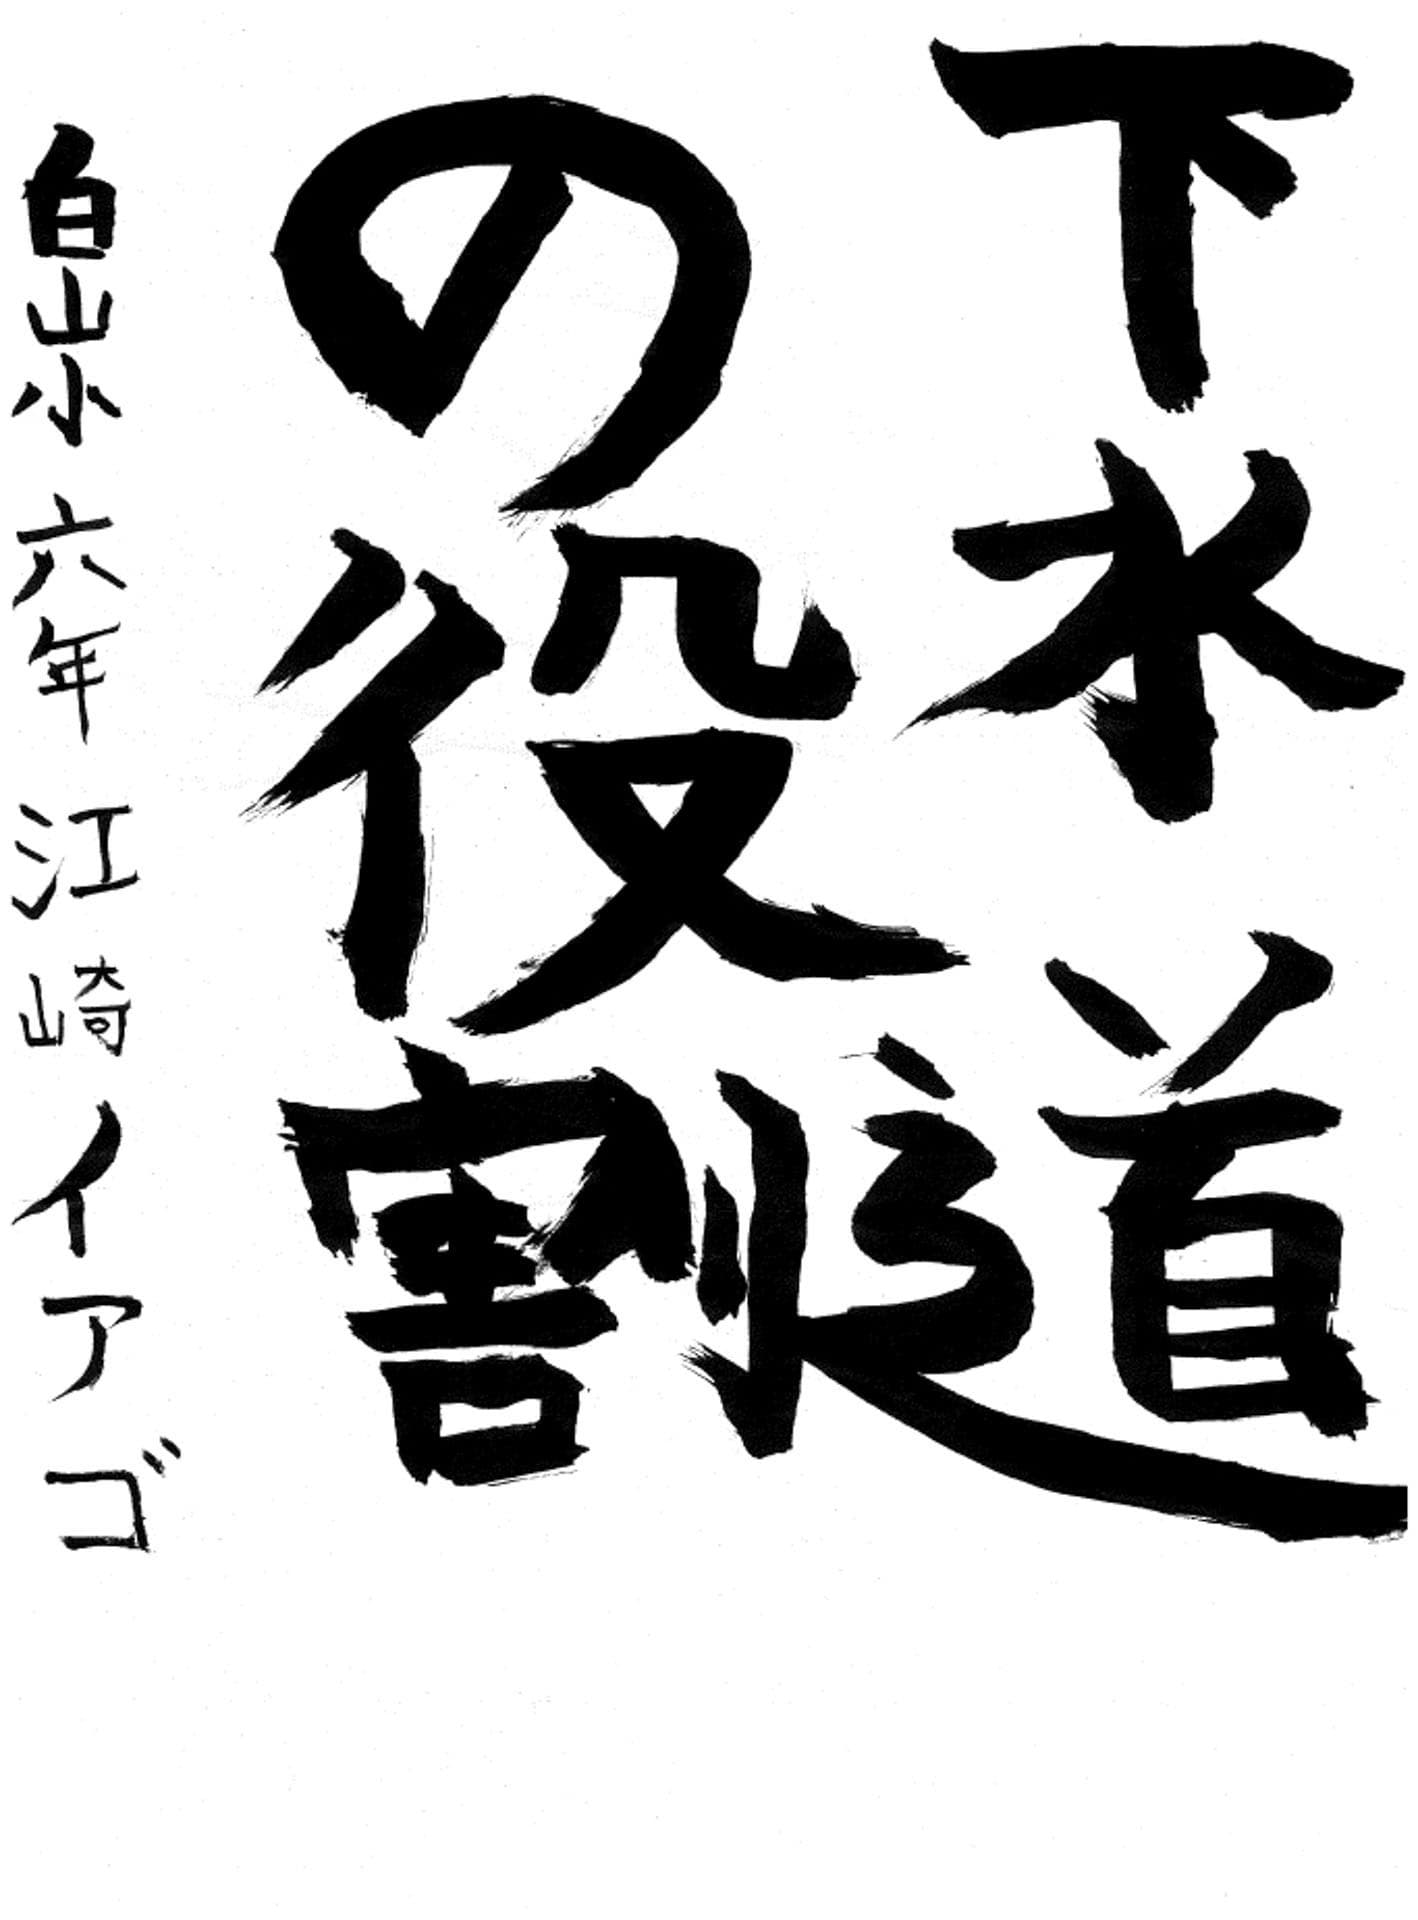 下水道
の役割
白山小 六年 江崎イアゴ